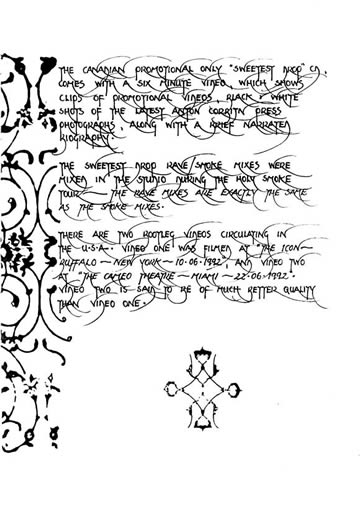 THE CANADIAN PROMOTIONAL ONLY "SWEETEST DROP" CD,
COMES WITH A SIX MINUTE VIDEO, WHICH SHOWS
CLIPS OF PROMOTIONAL VIDEOS, BLACK & WHITE
SHOTS OF THE LATEST ANTON CORBIJN PRESS
PHOTOGRAPHS, ALONG WITH A BRIEF NARRATED
BIOGRAPHY.
THE SWEETEST DROP RAVE/SMOKE MIXES WERE
MIXED IN THE STUDIO DURING THE HOLY SMOKE
TOUR — THE RAVE MIXES ARE EXACTLY THE SAME
AS THE SMOKE MIXES.
THERE ARE TWO BOOTLEG VIDEOS CIRCULATING IN
THE U.S.A. VIDEO ONE WAS FILMED AT "THE ICON —
BUFFALO — NEW YORK — 10.06.1992, AND VIDEO TWO
AT "THE CAMEO THEATRE — MIAMI — 22.06.1992".
VIDEO TWO IS SAID TO BE OF MUCH BETTER QUALITY
THAN VIDEO ONE.